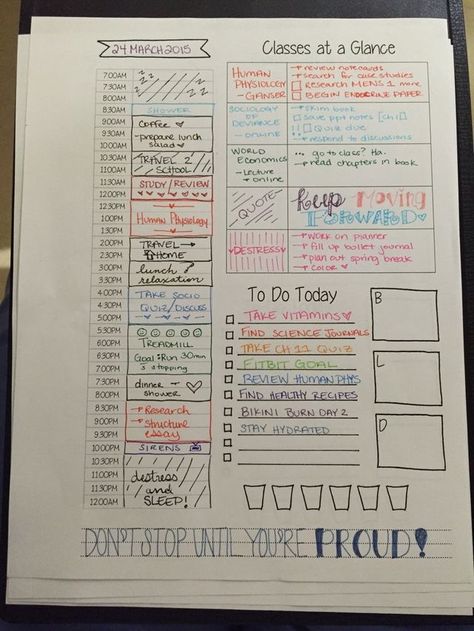 24 MARCH 2015
7:00AM
7:30AM
8:00AM
8:30AM
9:00AM
9:30AM
10:00AM
10:30AM
11:00AM
11:30AM
12:00PM
12:30PM
1:00PM
1:30PM
2:00PM
2:30PM
3:00PM
3:30PM
4:00PM
4:30PM
5:00PM
5:30PM
6:00PM
6:30PM
7:00PM
7:30PM
8:00PM
8:30PM
9:00PM
9:30PM
10:00PM
10:30PM
11:00PM
11:30PM
12:00AM
SHOWER
COFFEE
-prepare lunch
salad
TRAVEL 2
SCHOOL
STUDY/REVIEW
Human Physiology
TRAVEL →
HOME
lunch
relaxation
TAKE SOCIO
QUIZ/DISCUSS
TREADMILL
Goal: Run 30min
s stopping
dinner →
shower
→ Research
→ structure
essay
SIRENS
destress
and
SLEEP!
Classes at a Glance
HUMAN
PHYSIOLOGY
- GANSER
→ review notecards
→ search for case studies
Research MENS 1 more
BEGIN ENDOCRINE PAPER
SOCIOLOGY
OF
DEVIANCE
- ONLINE
→ skim book
save ppt notes [ch 11]
!! QUIZ due
→ respond to discussions
WORLD
ECONOMICS
- Lecture
→ online
... go to class? Ha.
→ read chapters in book
QUOTE
keep moving
FORWARD
DESTRESS
→ work on planner
→ fill up bullet journal
→ plan out spring break
→ color
To Do Today
TAKE VITAMINS
FIND SCIENCE JOURNALS
TAKE CH 11 QUIZ
FITBIT GOAL
REVIEW HUMAN PHYS
FIND HEALTHY RECIPES
BIKINI BURN DAY 2
STAY HYDRATED
B
L
D
DON'T STOP UNTIL YOU'RE PROUD!